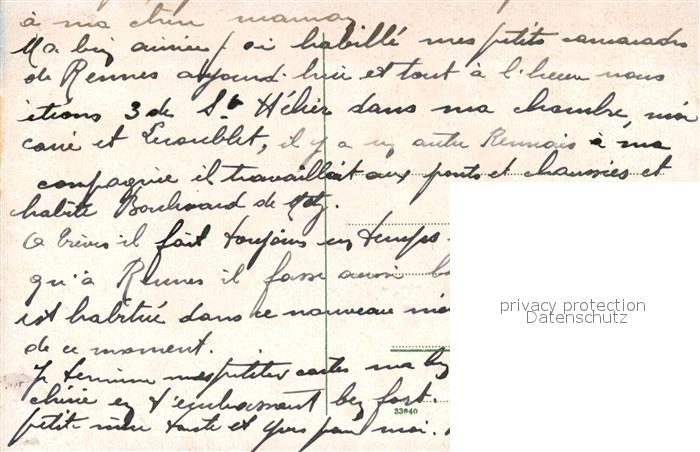 à ma chère maman
Ma bien aimée j'ai habillé mes petits camarades
de Rennes aujourd'hui et tout à l'heure nous
étions 3 de St Hélier dans ma chambre, moi
et Lecoublet, il y a un autre Rennais à ma
compagnie il travaillait aux ponts et chaussées et
habite Boulevard de Metz.
A Trèves il fait toujours un temps
qu'à Rennes il fasse aussi
est habitué dans ce nouveau
de ce moment.
Je termine mes petites cartes ma
chérie en t'embrassant bien fort.
petite mère tante et Yves pour moi.
33640
privacy protection
Datenschutz